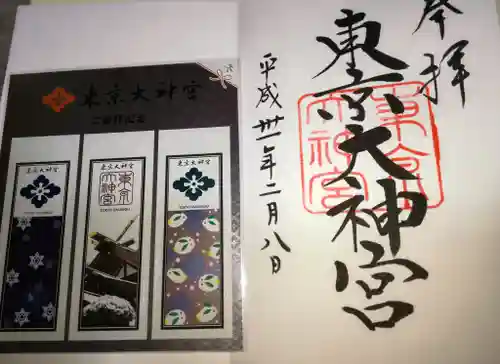 奉拝
東京大神宮
平成卅一年二月八日
東京大神宮
東京大神宮
東京大神宮
東京大神宮
東京大神宮